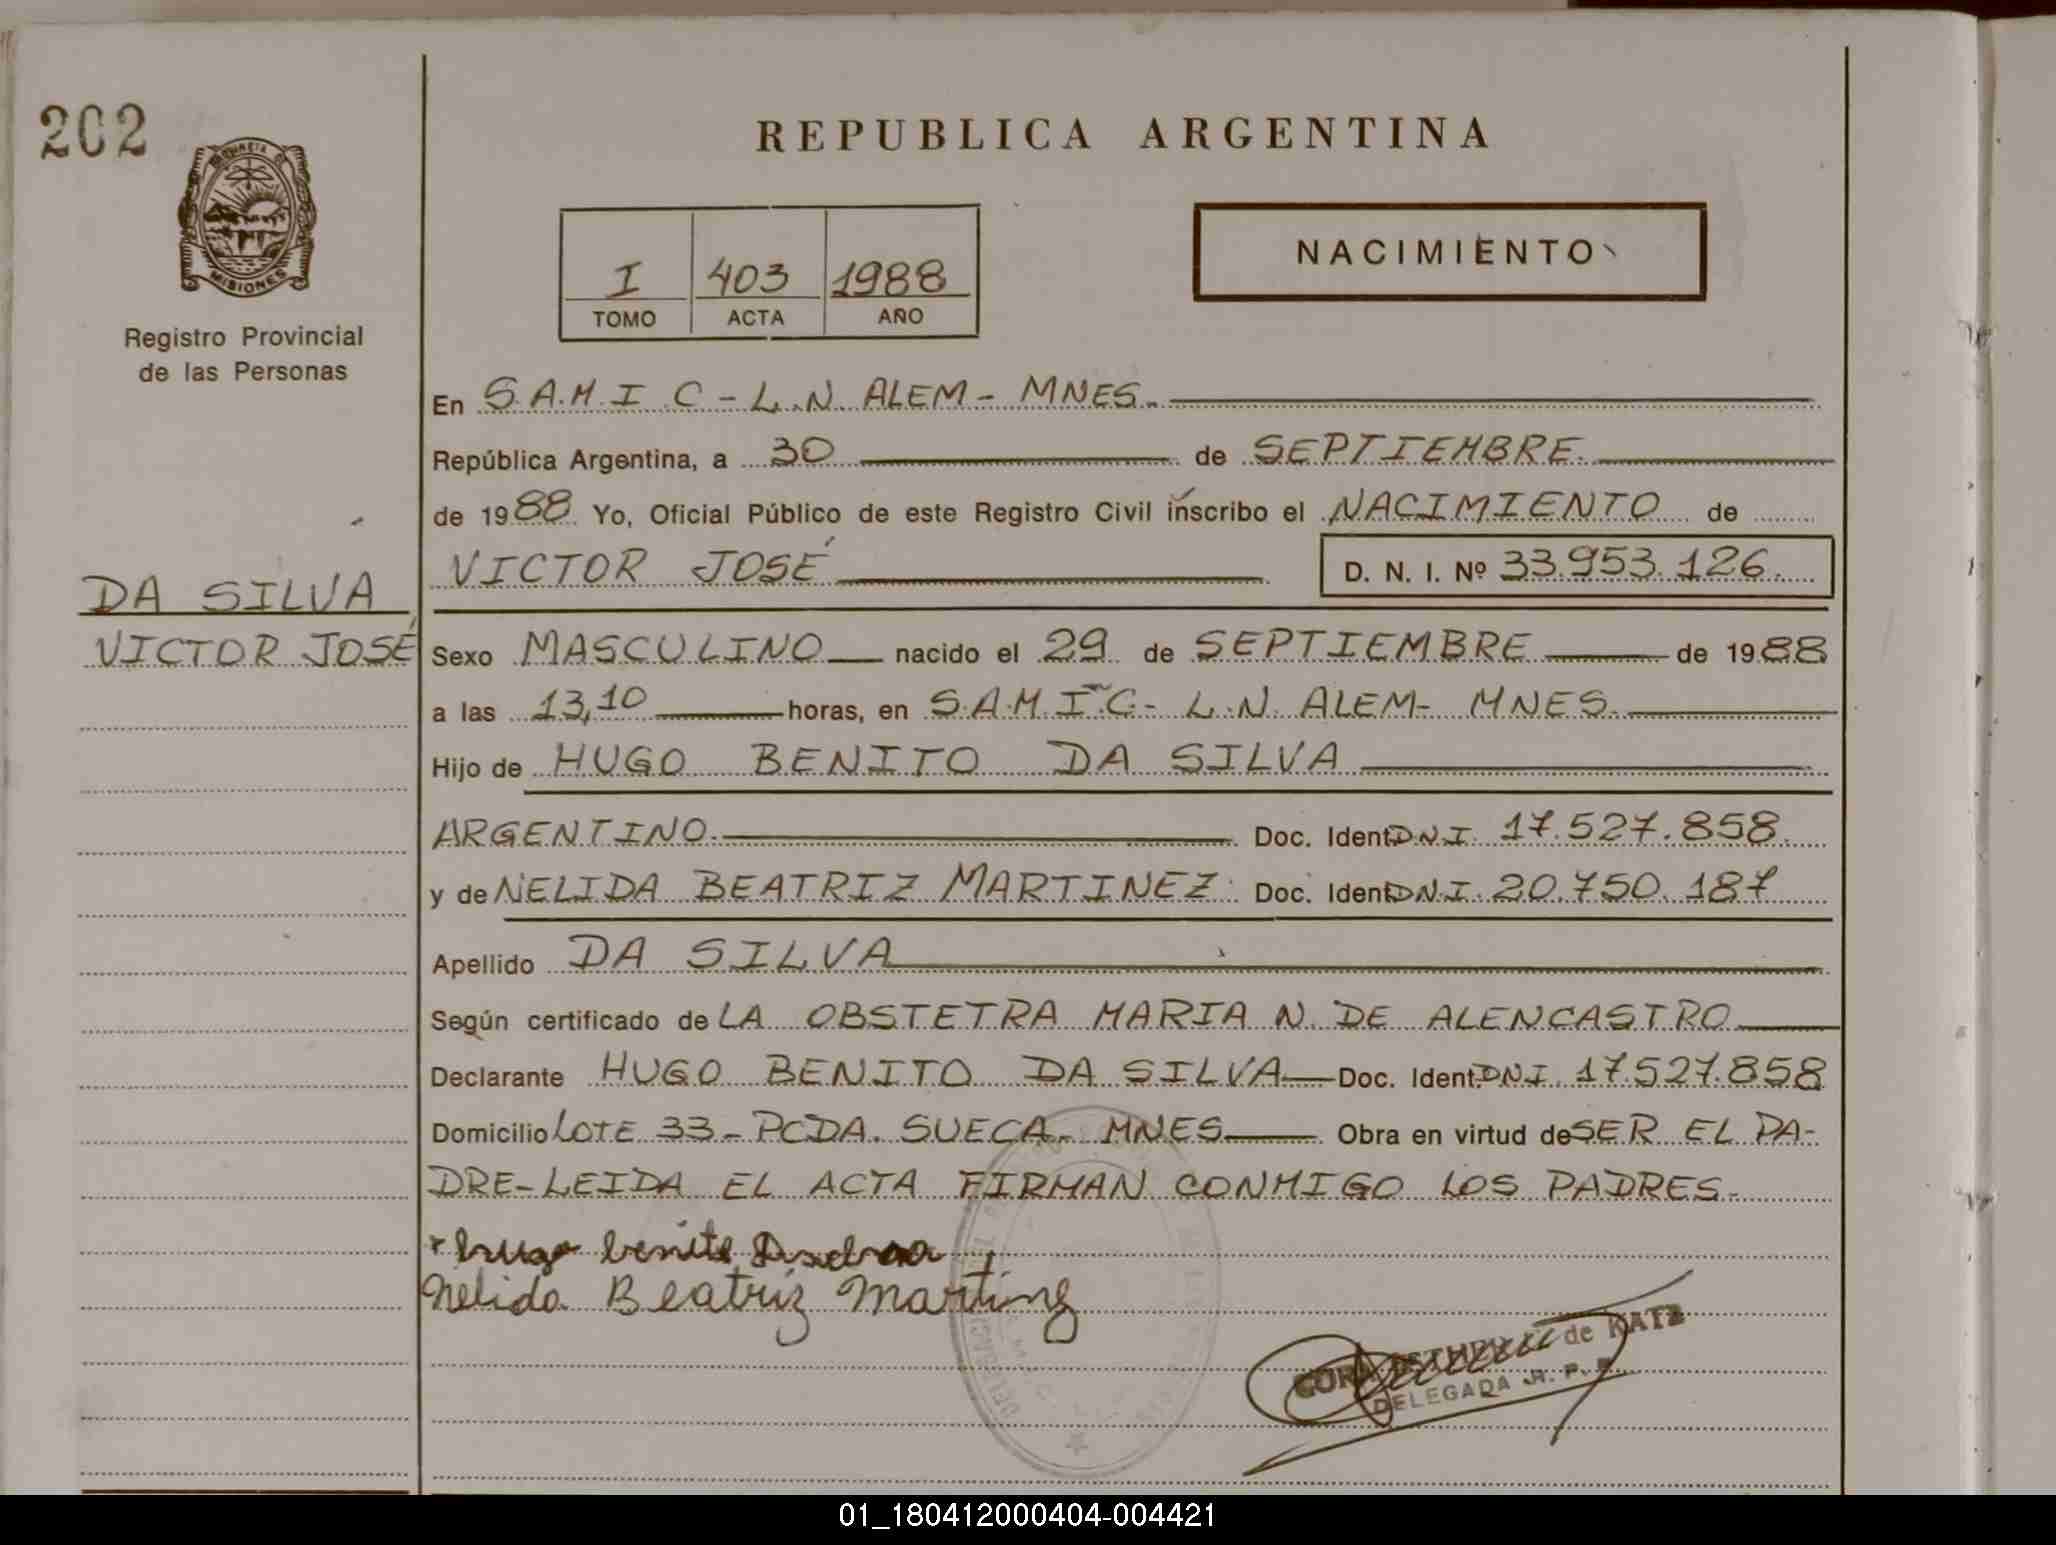 202
PROVINCIA DE
MISIONES
Registro Provincial
de las Personas
DA SILVA
VICTOR JOSÉ
REPUBLICA ARGENTINA
I 403 1988
TOMO ACTA AÑO
NACIMIENTO
En S.A.M.I.C - L.N. ALEM - MNES.
República Argentina, a 30 de SEPTIEMBRE.
de 1988. Yo, Oficial Público de este Registro Civil inscribo el NACIMIENTO de
VICTOR JOSÉ D. N. I. Nº 33.953.126.
Sexo MASCULINO nacido el 29 de SEPTIEMBRE de 1988
a las 13,10 horas, en S.A.M.I.C.- L.N. ALEM- MNES.
Hijo de HUGO BENITO DA SILVA
ARGENTINO. Doc. Ident. D.N.I. 17.527.858.
y de NELIDA BEATRIZ MARTINEZ. Doc. Ident. D.N.I. 20.750.187
Apellido DA SILVA
Según certificado de LA OBSTETRA MARIA N. DE ALENCASTRO
Declarante HUGO BENITO DA SILVA Doc. Ident. DNI 17.527.858
Domicilio LOTE 33 - PCDA. SUECA - MNES Obra en virtud de SER EL PA-
DRE-LEIDA EL ACTA FIRMAN CONMIGO LOS PADRES.
hugo benito
Nelida Beatriz Martinez
de KATZ
DELEGADA R. P. P.
01_180412000404-004421